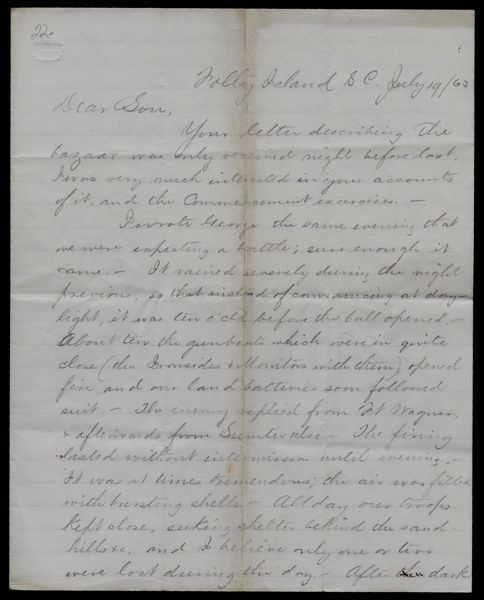 22.
Folly Island S C. July 19/63
Dear Son,
Your letter describing the
bazaar was only received night before last,
I was very much interested in your accounts
of it, and the Commencement excercises. —
I wrote George the same evening that
we were expecting a battle; sure enough it
came. — It rained severely during the night
previous, so that instead of commencing at day-
light, it was ten o'clk before the ball opened. —
About ten the gunboats which were in quite
close (the Ironsides & Monitors with them) opened
fire, and our land batteries soon followed
suit — The enemy replied from Ft Wagner,
& afterwards from Sumter also — The firing
lasted without intermission until evening. —
It was at times tremendous; the air was filled
with bursting shells. — All day our troops
kept close, seeking shelter behind the sand-
hills &c, and I believe only one or two
were lost during the day. — After the dark